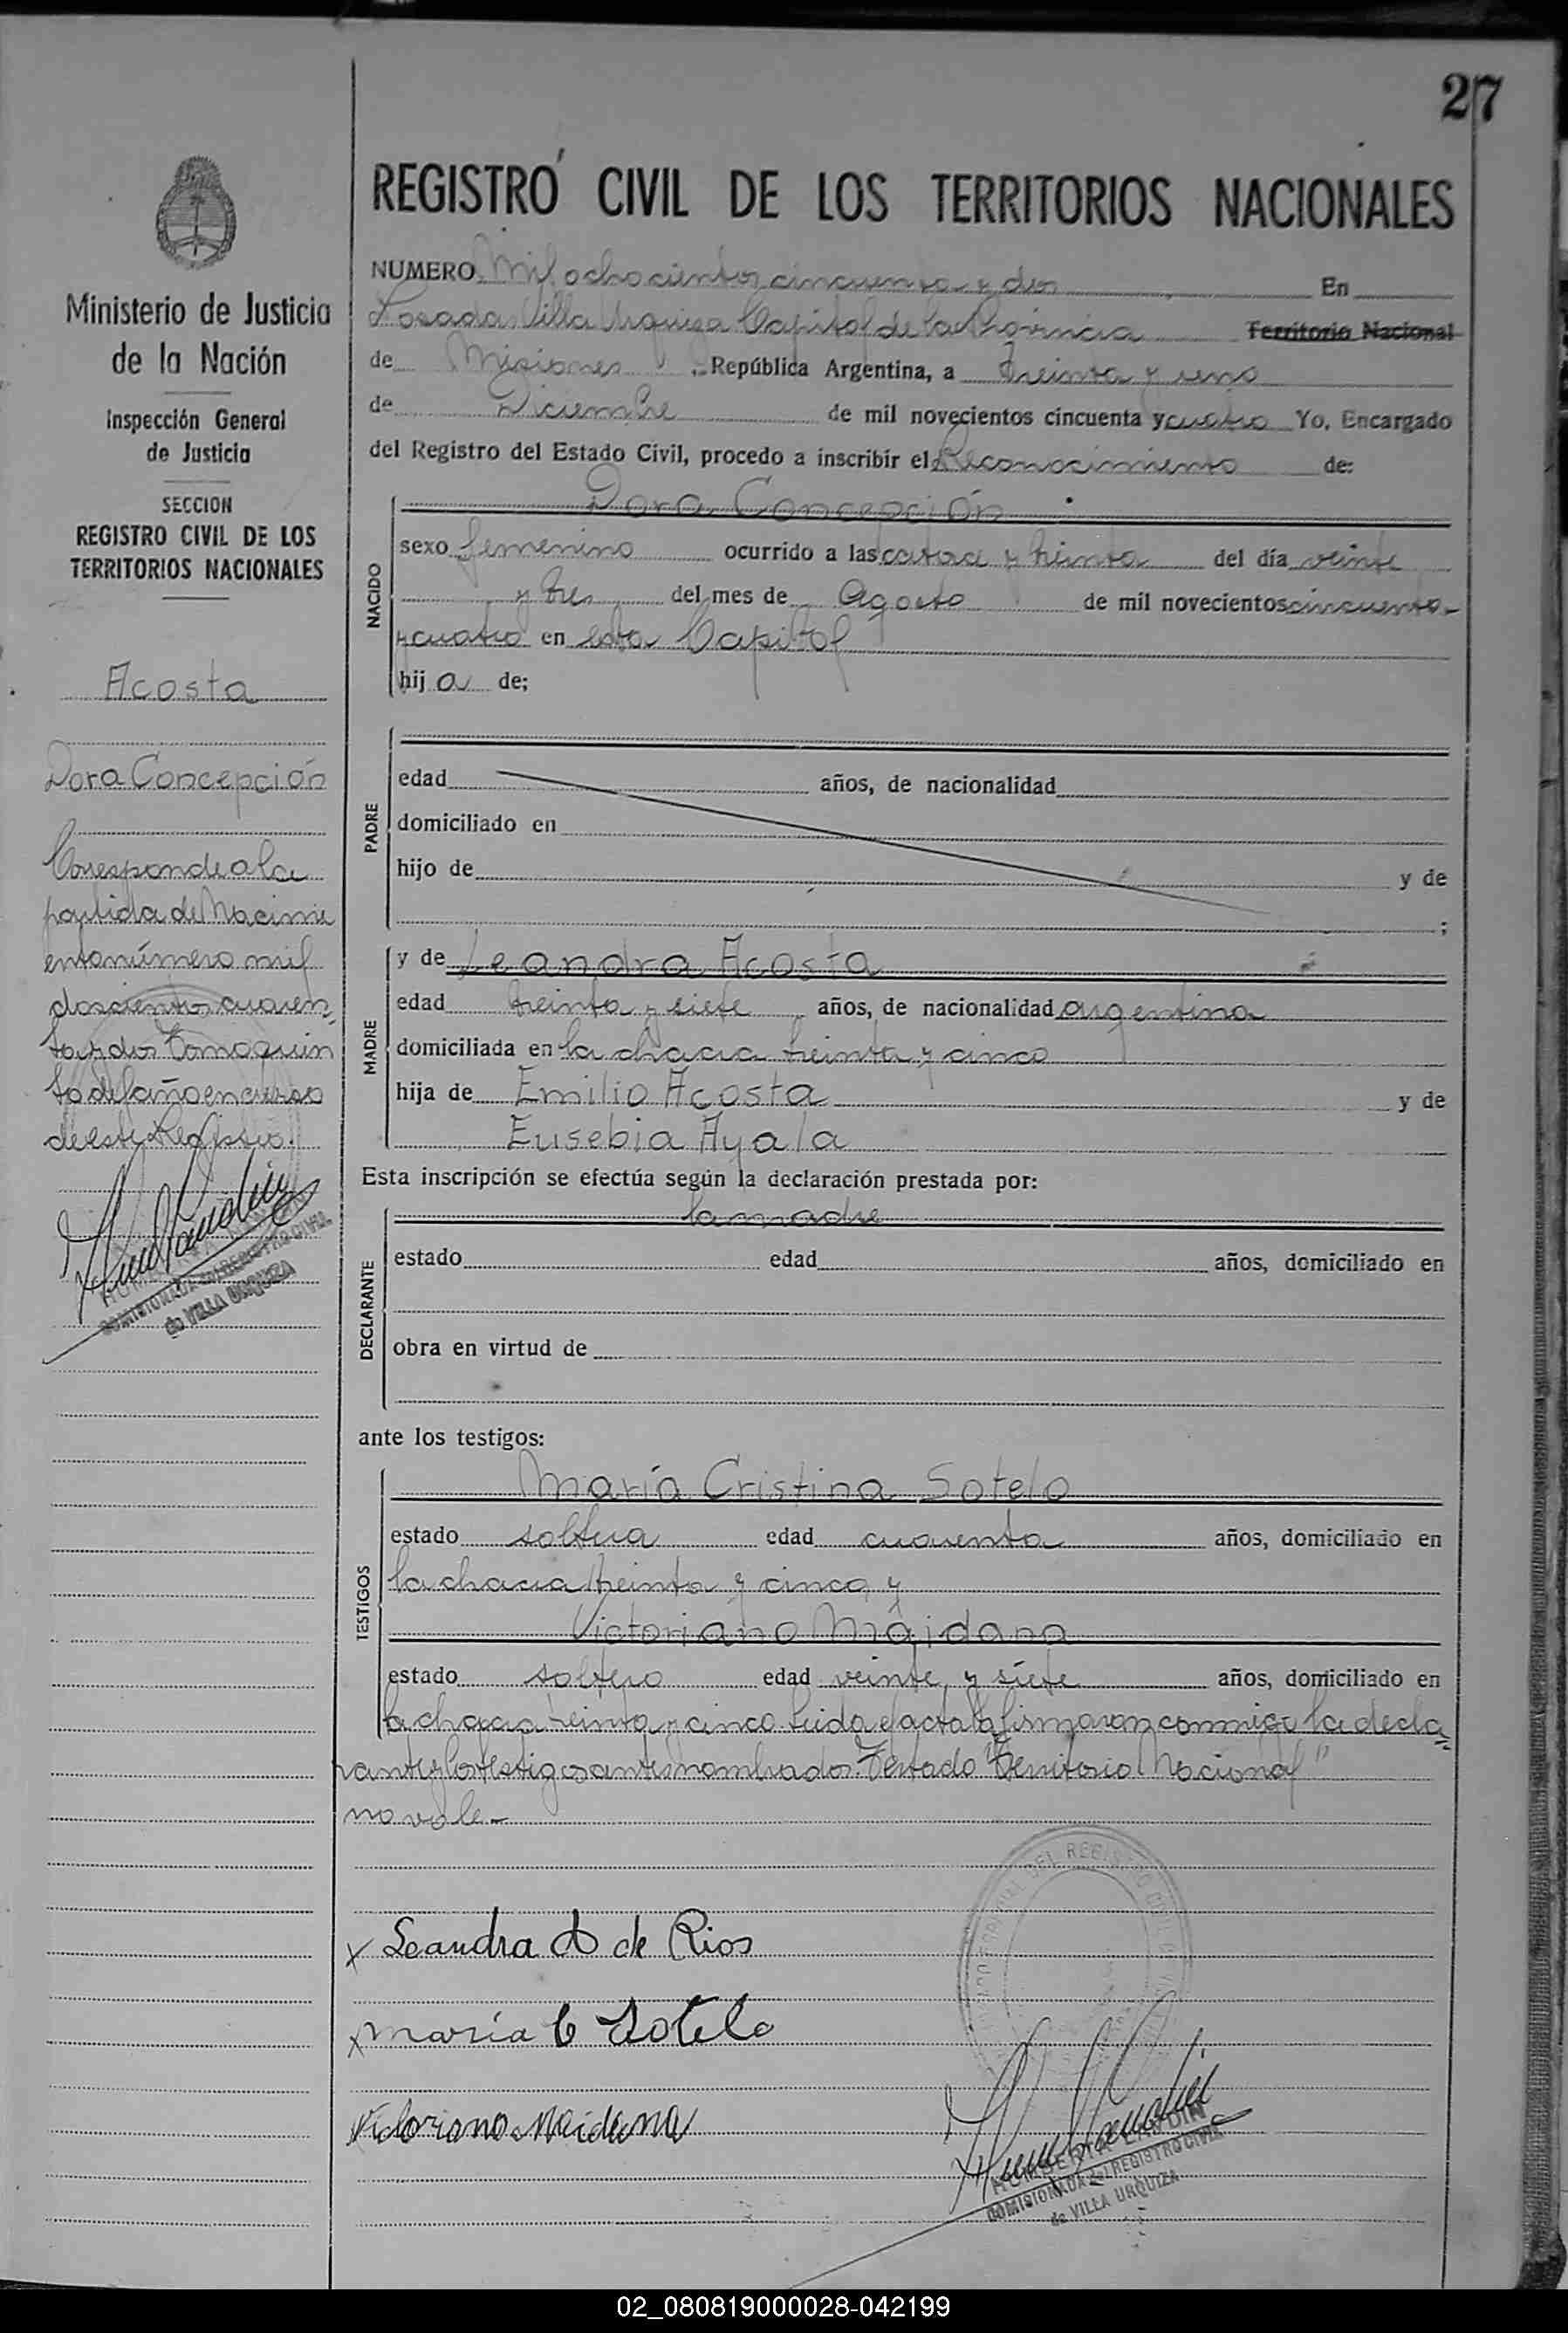 27
REGISTRO CIVIL DE LOS TERRITORIOS NACIONALES
NUMERO Mil ochocientos cincuenta y dos En
Posadas Villa Urquiza Capital de la Provincia Territorio Nacional
de Misiones República Argentina, a treinta y uno
de Diciembre de mil novecientos cincuenta y cuatro Yo, Encargado
del Registro del Estado Civil, procedo a inscribir el Reconocimiento de:
NACIDO
Dora Concepción
sexo femenino ocurrido a las catorce y treinta del día veinte
y tres del mes de Agosto de mil novecientos cincuenta
y cuatro en esta Capital
hija de;
PADRE
edad años, de nacionalidad
domiciliado en
hijo de y de
;
MADRE
y de Leandra Acosta
edad treinta y siete años, de nacionalidad argentina
domiciliada en la chacra treinta y cinco
hija de Emilio Acosta y de
Eusebia Ayala
Esta inscripción se efectúa según la declaración prestada por:
DECLARANTE
la madre
estado edad años, domiciliado en
obra en virtud de
ante los testigos:
TESTIGOS
María Cristina Sotelo
estado soltera edad cuarenta años, domiciliado en
la chacra treinta y cinco y
Victoriano Maidana
estado soltero edad veinte y siete años, domiciliado en
la chacra treinta y cinco. Leida el acta la firmaron conmigo la decla
rante y los testigos antes nombrados. Testado "Territorio Nacional"
no vale.-
x Leandra A de Rios
x maria C Sotelo
Victoriano Maidana
HUMBERTA LANDIN
COMISIONADA del REGISTRO CIVIL
de VILLA URQUIZA
Ministerio de Justicia
de la Nación
Inspección General
de Justicia
SECCION
REGISTRO CIVIL DE LOS
TERRITORIOS NACIONALES
Acosta
Dora Concepción
Corresponde a la
partida de Nacimi
ento número mil
doscientos cuaren
ta y dos Tomo quin
to del año en curso
de este Registro.
COMISIONADA del REGISTRO CIVIL
de VILLA URQUIZA
02_080819000028-042199